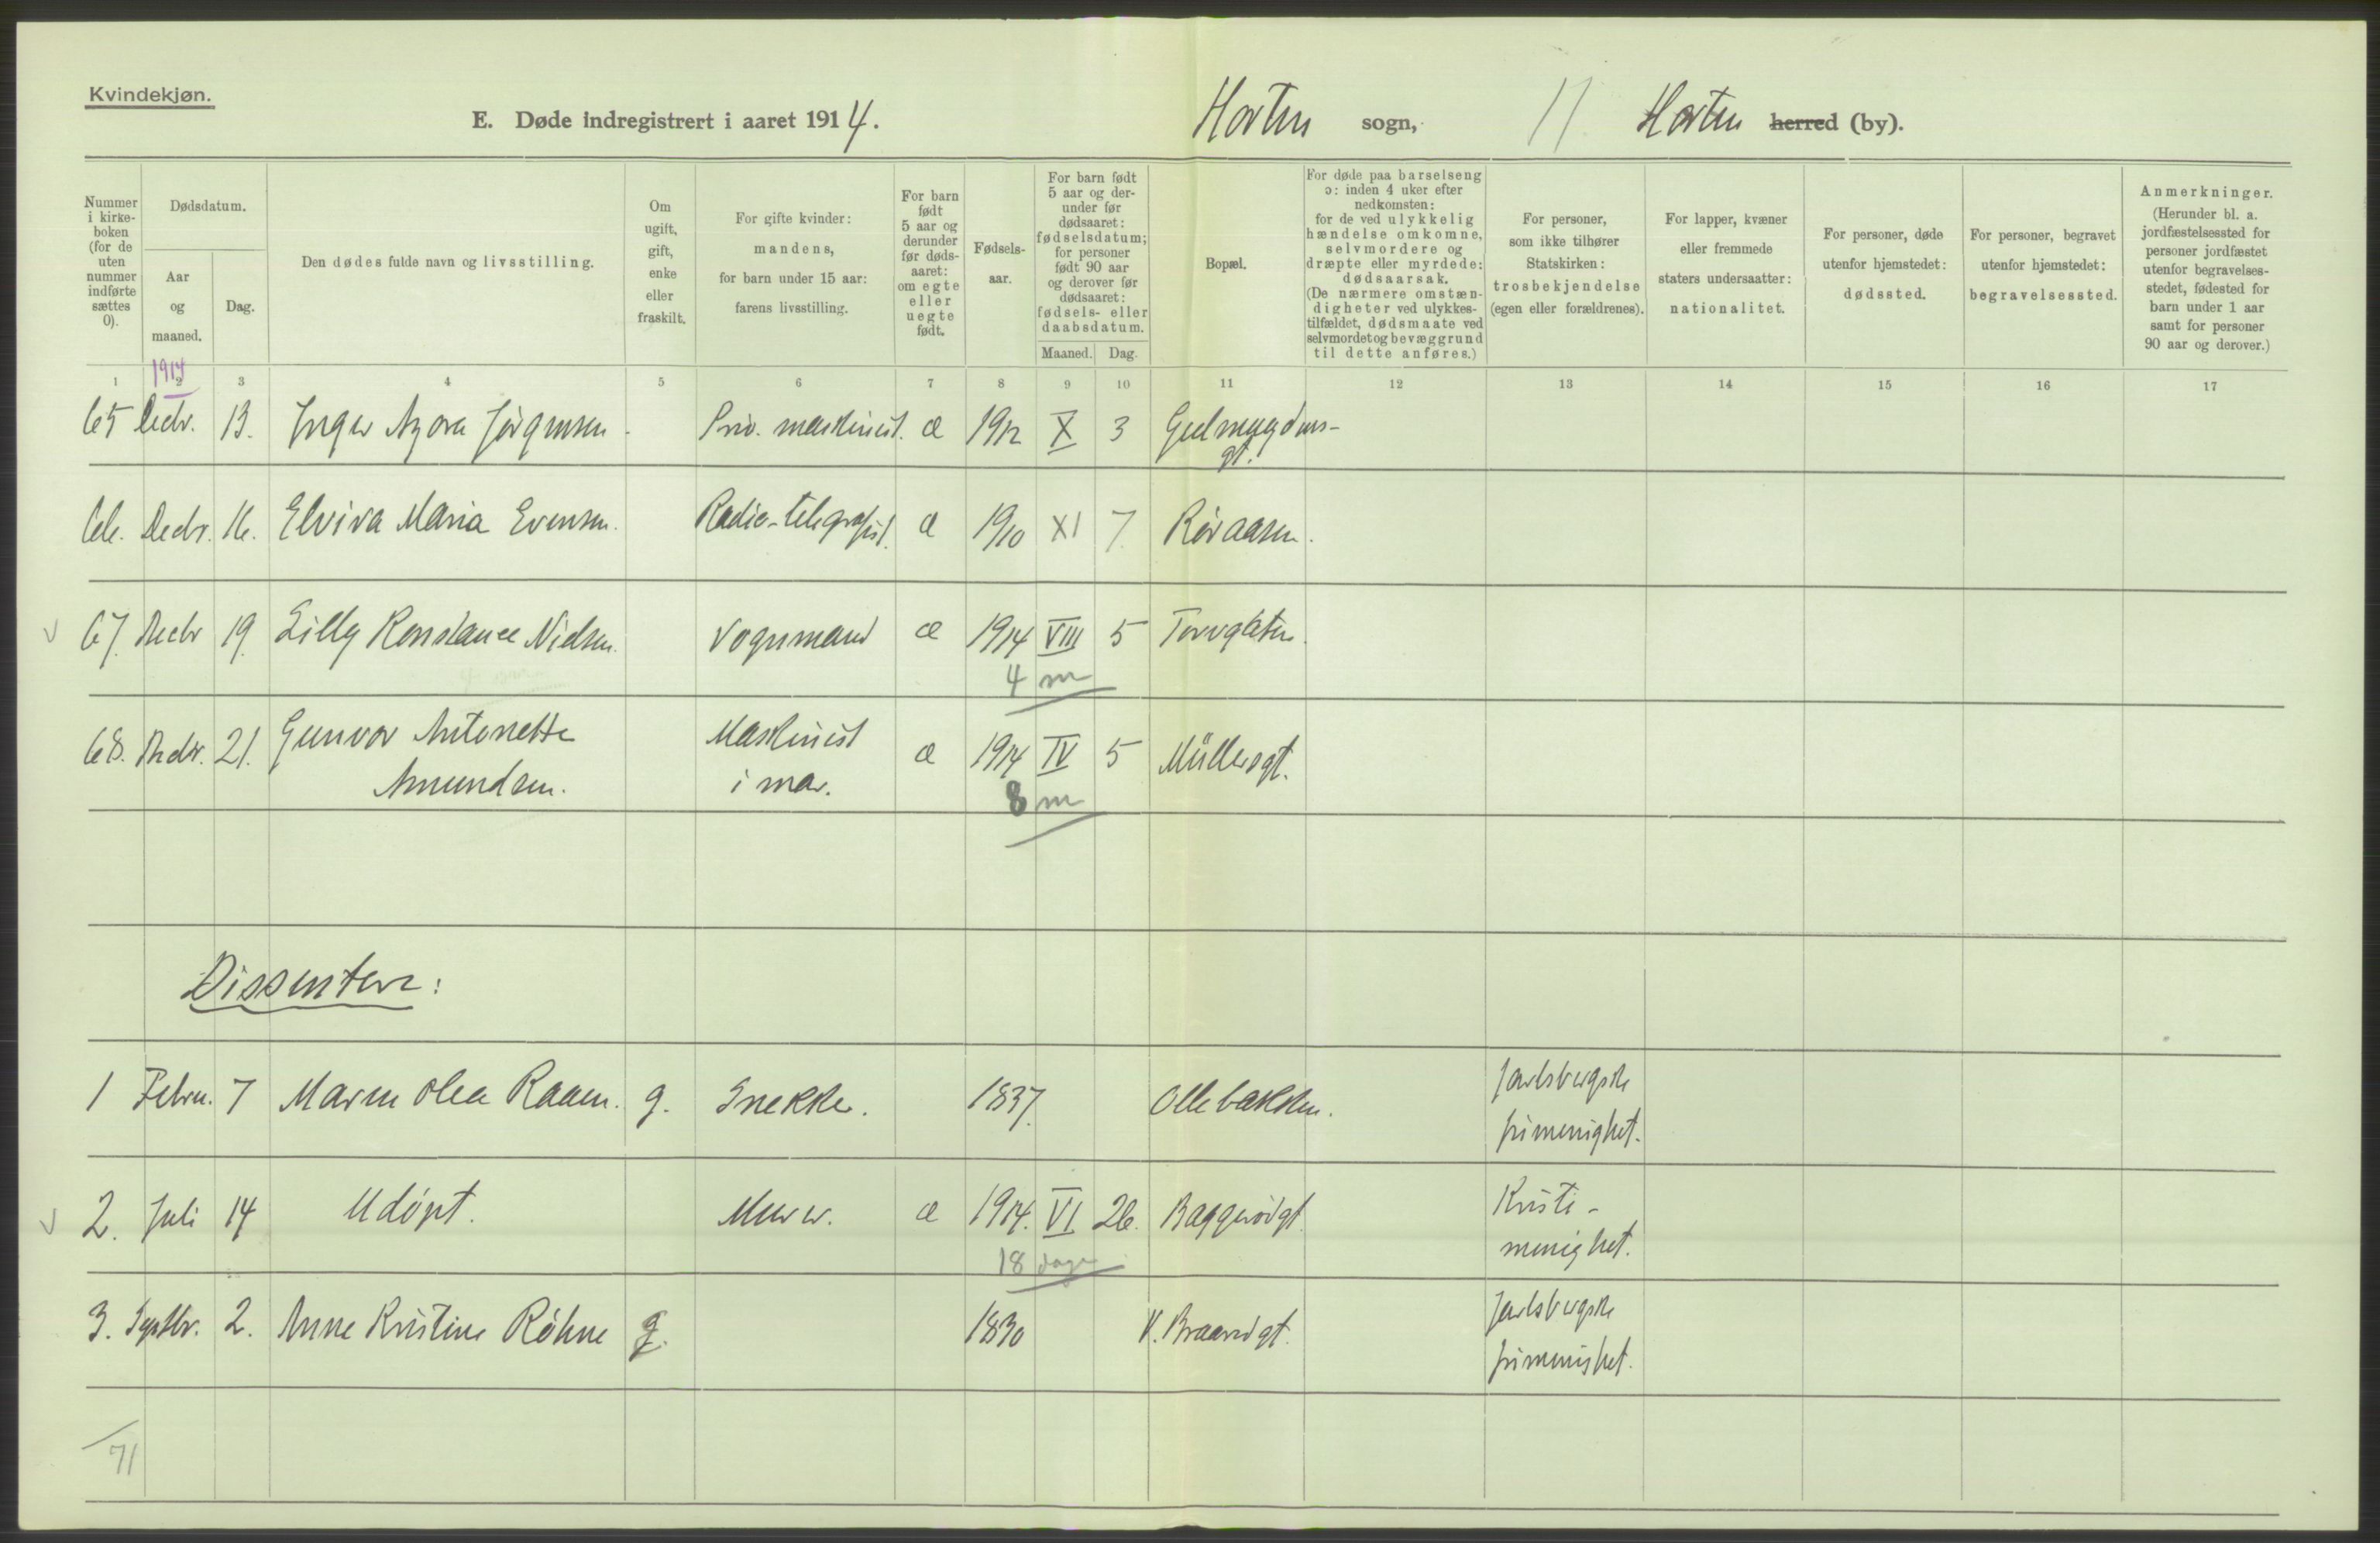 Kvindekjøn.
E. Døde indregistrert i aaret 1914.
Horten sogn, 11 Horten herred (by).
Nummer i kirke-boken (for de uten nummer indførte sættes 0).
Dødsdatum.
Aar og maaned.
Dag.
Den dødes fulde navn og livsstilling.
Om ugift, gift, enke eller fraskilt.
For gifte kvinder: mandens, for barn under 15 aar: farens livsstilling.
For barn født 5 aar og derunder før døds-aaret: om egte eller uegte født.
Fødsels-aar.
For barn født 5 aar og der-under før dødsaaret: fødselsdatum; for personer født 90 aar og derover før dødsaaret: fødsels- eller daabsdatum.
Maaned. Dag.
Bopæl.
For døde paa barselseng ɔ: inden 4 uker efter nedkomsten: for de ved ulykkelig hændelse omkomne, selvmordere og dræpte eller myrdede: dødsaarsak. (De nærmere omstæn-digheter ved ulykkes-tilfældet, dødsmaate ved selvmordet og bevæggrund til dette anføres.)
For personer, som ikke tilhører Statskirken: trosbekjendelse (egen eller forældrenes).
For lapper, kvæner eller fremmede staters undersaatter: nationalitet.
For personer, døde utenfor hjemstedet: dødssted.
For personer, begravet utenfor hjemstedet: begravelsessted.
Anmerkninger. (Herunder bl. a. jordfæstelsessted for personer jordfæstet utenfor begravelses-stedet, fødested for barn under 1 aar samt for personer 90 aar og derover.)
1 2 3 4 5 6 7 8 9 10 11 12 13 14 15 16 17
1914
65 Decbr. 13. Inger Agora Jørgensen. Priv. maskinist. æ 1912 X 3
gt.
66. Decbr. 16. Elvira Maria Evensen. Radio-telegrafist. æ 1910 XI 7. Røraasen.
67. Decbr 19. Lilly Konstance Nielsen. Vognmand æ 1914 VIII 5 Torvgaten.
4 m
68. Decbr. 21. Gunvor Antonette Amundsen. Maskinist i mar. æ 1914 IV 5 Müllersgt.
8 m
Dissentere:
1 Febru. 7 Maren Olea Raaen. g. Snekker. 1837. Ollebakken. Jarlsbergske frimenighet.
2. Juli 14 Udøpt. Murer. æ 1914. VI 26. Baggerødgt. Kristi-menighet.
18 dage
3. Septbr. 2. Anne Kristine Røhne g. 1830 V. Braarudgt. Jarlsbergske frimenighet.
71